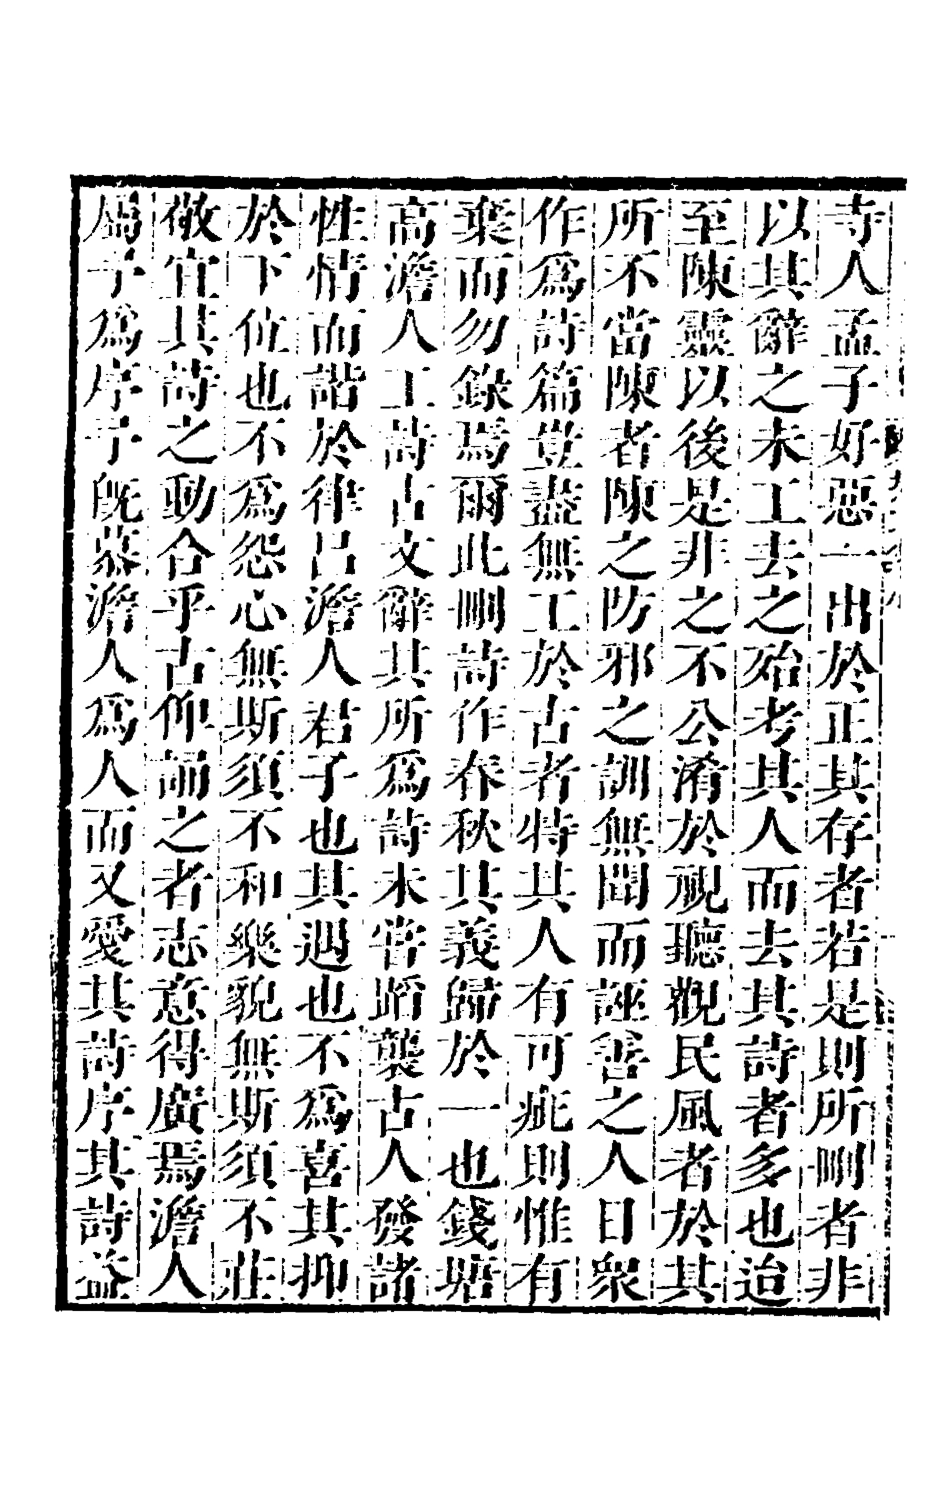 寺人孟子好惡一出於正其存者若是則所刪者非
以其辭之未工去之殆考其人而去其詩者多也迨
至陳靈以後是非之不公淆於視聽觀民風者於其
所不當陳者陳之防邪之訓無聞而誣善之人日衆
作爲詩篇豈盡無工於古者特其人有可疵則惟有
棄而勿錄焉爾此刪詩作春秋其義歸於一也錢塘
高澹人工詩古文辭其所爲詩未嘗蹈襲古人發諸
性情而諧於律呂澹人君子也其遇也不爲喜其抑
於下位也不爲怨心無斯須不和樂貌無斯須不莊
敬宜其詩之動合乎古仰誦之者志意得廣焉澹人
屬予爲序予旣慕澹人爲人而又愛其詩序其詩益